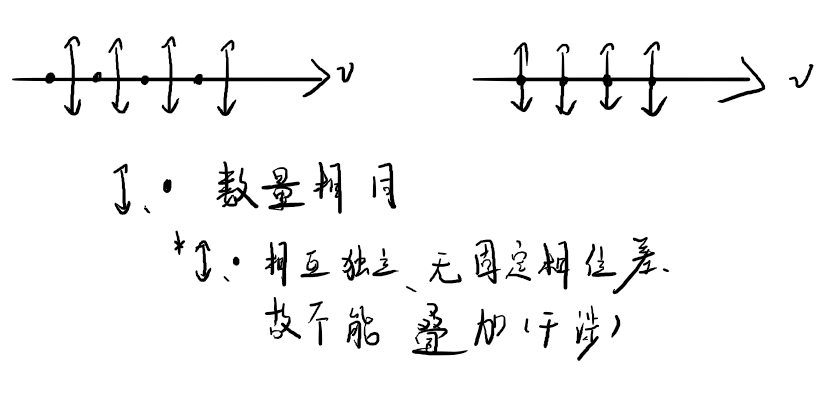 v
v
↕、• 数量相同
*↕、• 相互独立、无固定相位差.
故不能叠加(干涉)